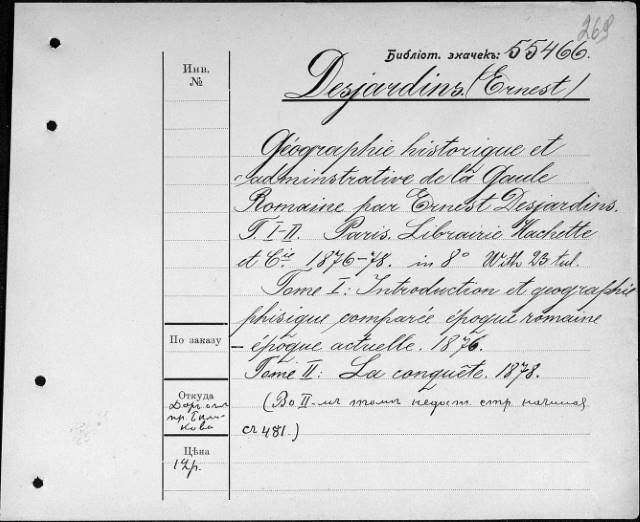 269
Библіот. значекъ: 55466.
Инв.
№
Desjardins. (Ernest)
Géographie historique et
adminstrative de la Gaule
Romaine par Ernest Desjardins.
T. I-II. Paris. Librairie Hachette
et Cie. 1876-78. in 8° With 23 tal.
Tome I: Introduction et geographie
phisique comparée époque romaine
По заказу
— époque actuelle. 1876.
Tome II: La conquête. 1878.
Откуда
Даръ
пр.
кова
(Во II-мъ томѣ недост. стр. начиная
съ 481.)
Цѣна
12р.